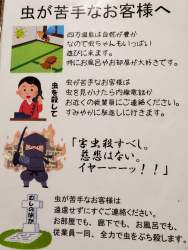 虫が苦手なお客様へ
四万温泉は自然が豊か
なので虫ちゃんもいっぱい
遊びに来ます。
特にお風呂やお部屋が大好きです。
虫を殺して
虫が苦手なお客様は
虫を見かけたら内線電話か
お近くの従業員にご連絡ください。
すみやかに駆逐しに行きます。
「害虫殺すべし。
慈悲はない。
イヤーーーッ!!」
むしのはか
虫が苦手なお客様は
遠慮せずにすぐご連絡ください。
お部屋でも、廊下でも、お風呂でも、
従業員一同、全力で虫をぶち殺します。